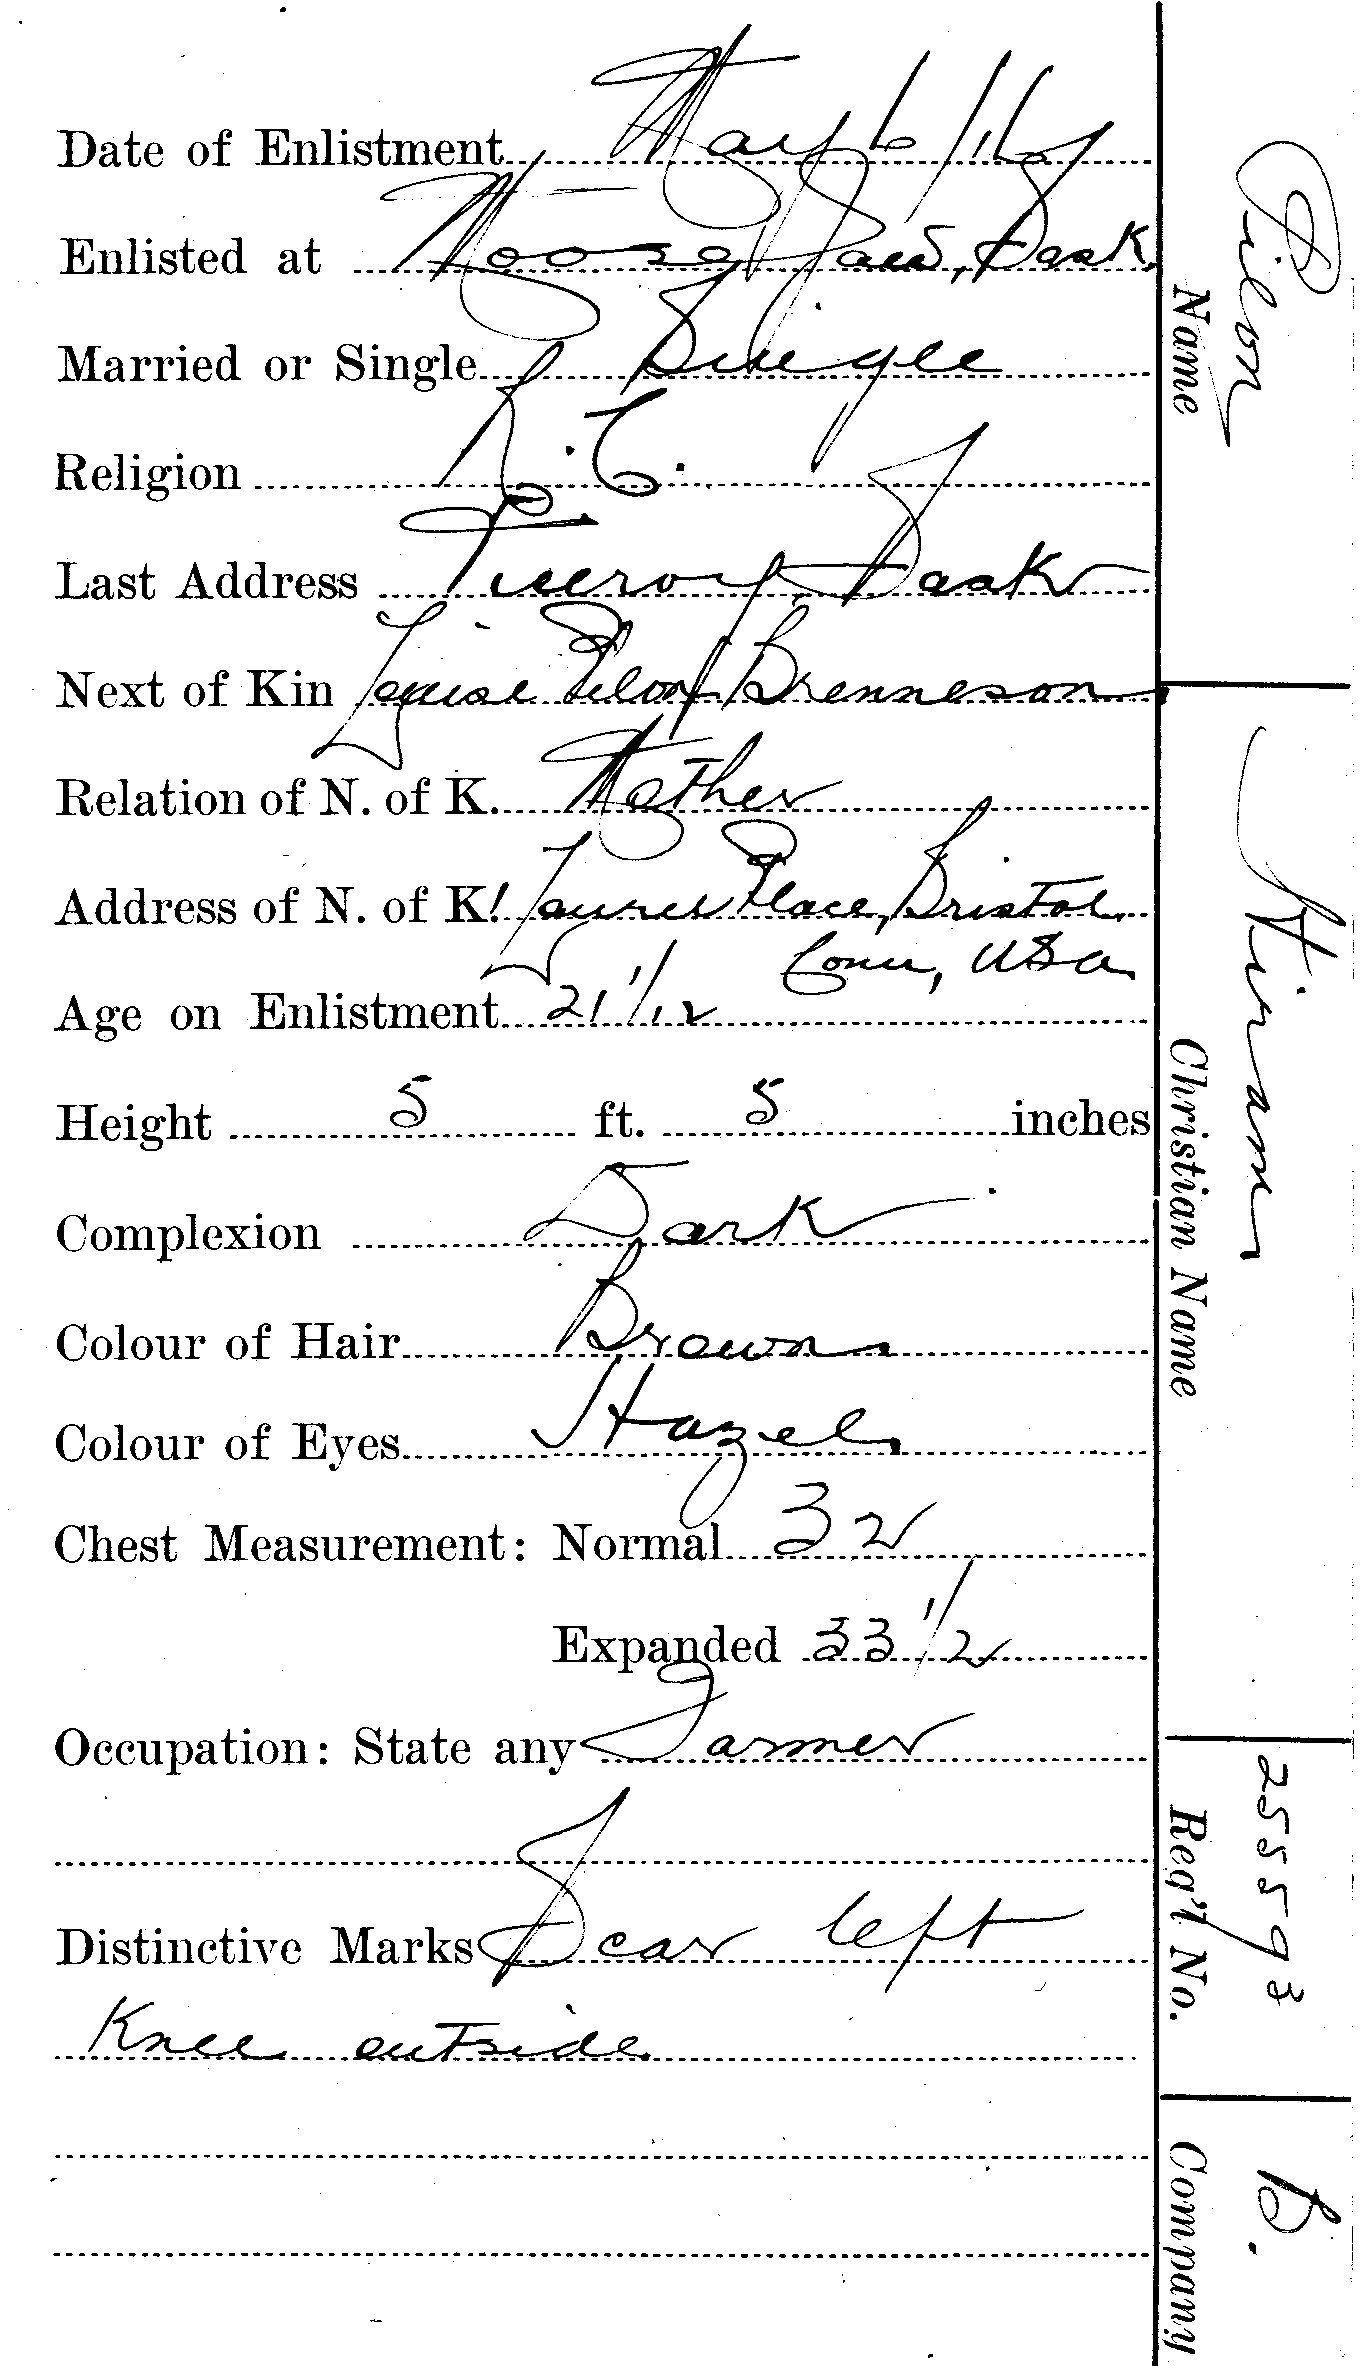 Date of Enlistment May 6/16
Enlisted at Moose Jaw, Sask.
Married or Single Single
Religion R.C.
Last Address Sask
Next of Kin Louise Pilon Brenneson
Relation of N. of K. Mother
Address of N. of K. Laurel Place, Bristol,
Conn, USA
Age on Enlistment 21 1/12
Height 5 ft. 5 inches
Complexion Dark
Colour of Hair Brown
Colour of Eyes Hazel
Chest Measurement: Normal 32
Expanded 33 1/2
Occupation: State any Farmer
Distinctive Marks Scar left
Knee outside
Pilon
Name
Hiram
Christian Name
255593
Reg'l No.
B.
Company